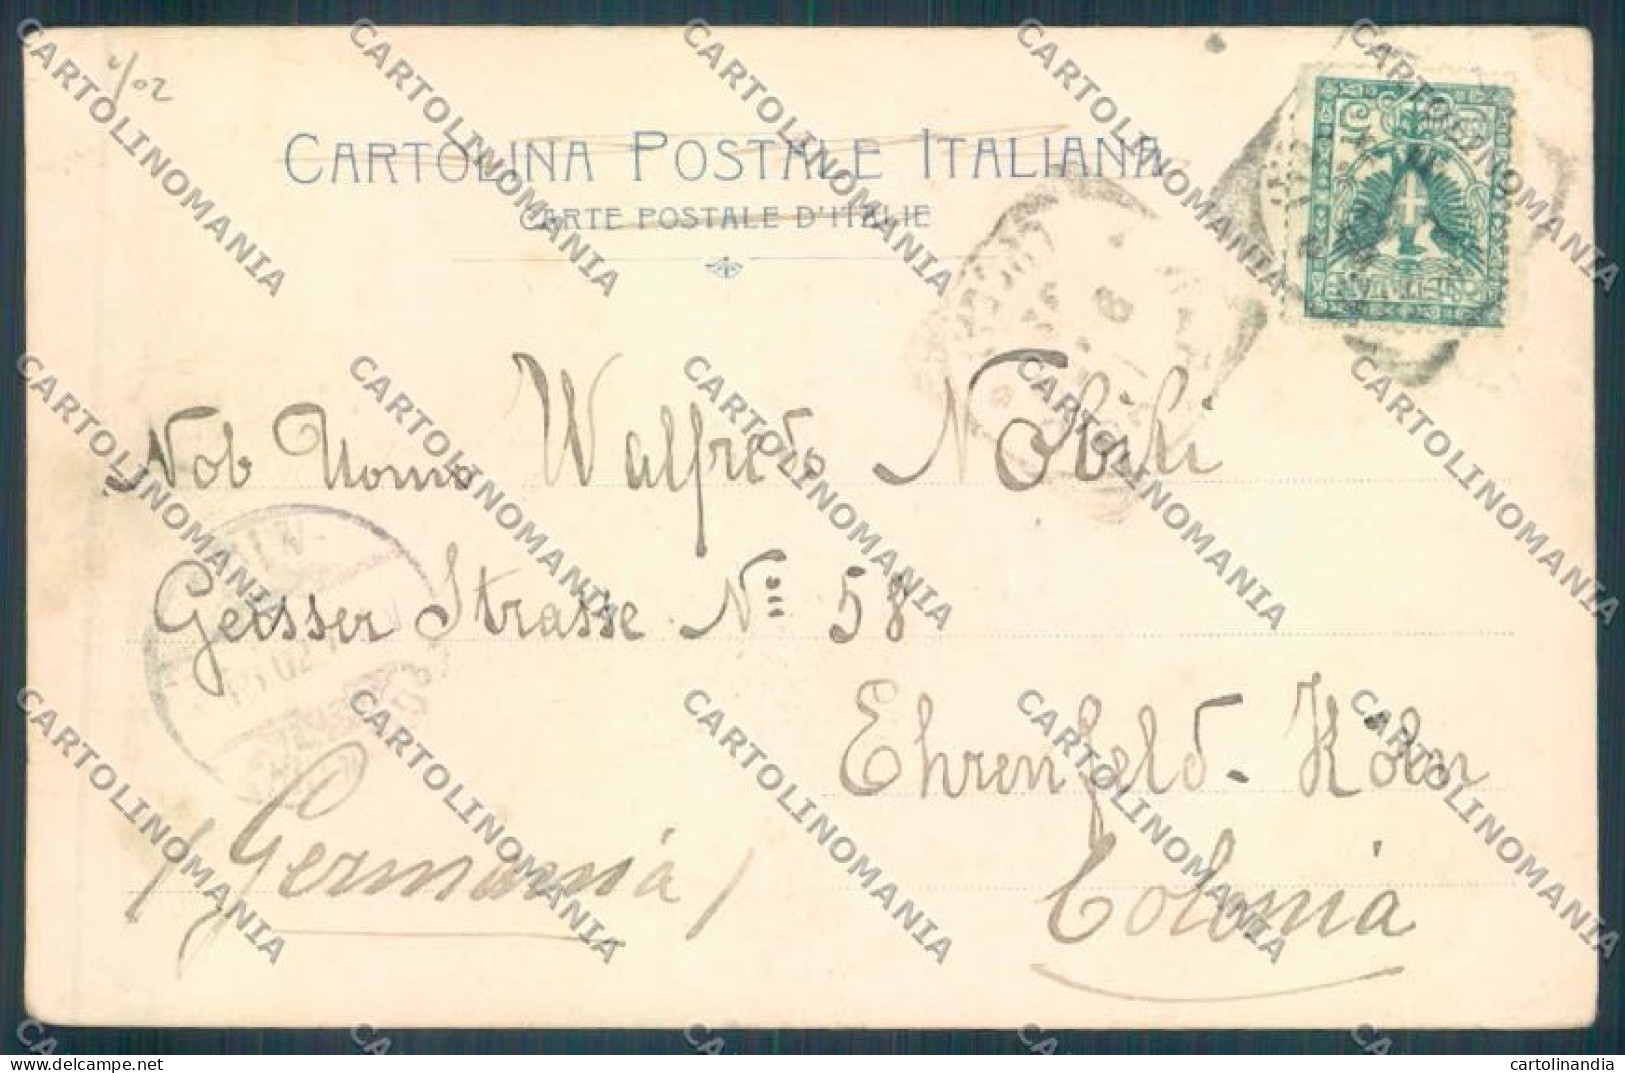 4/02
CARTOLINA POSTALE ITALIANA
CARTE POSTALE D'ITALIE
Nob Uomo Walfredo Nobili
Geisser Strasse No 58
Ehrenfeld - Köln
(Germania)
Colonia
CARTOLINOMANIA
cartolinandia